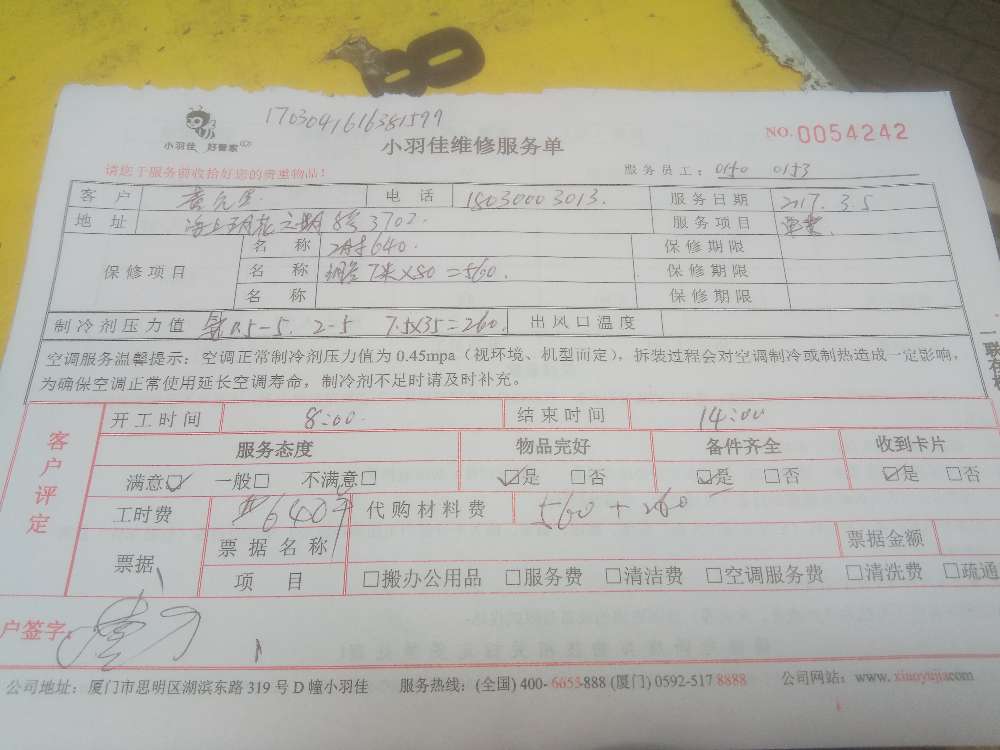 1703041616381599
小羽佳 好管家
小羽佳维修服务单
NO.0054242
请您于服务前收拾好您的贵重物品！
服务员工：0150 0153
客户 黄先生 电话 18030003013. 服务日期 2017.3.5
地址 海上明花 8号3702. 服务项目
保修项目 名称 640. 保修期限
名称 铜管7米×80=560. 保修期限
名称 保修期限
制冷剂压力值 0.5-5. 2-5 7.5×35=260. 出风口温度
空调服务温馨提示：空调正常制冷剂压力值为 0.45mpa（视环境、机型而定），拆装过程会对空调制冷或制热造成一定影响，
为确保空调正常使用延长空调寿命，制冷剂不足时请及时补充。
客户评定
开工时间 8:00. 结束时间 14:00
服务态度 物品完好 备件齐全 收到卡片
满意☑ 一般□ 不满意□ ☑是 □否 ☑是 □否 ☑是 □否
工时费 640 代购材料费 560+260
票据 票据名称 票据金额
项目 □搬办公用品 □服务费 □清洁费 □空调服务费 □清洗费 □疏通
户签字：
公司地址：厦门市思明区湖滨东路 319 号 D 幢小羽佳 服务热线：(全国) 400-6653-888 (厦门) 0592-517 8888 公司网站：www. xiaoyujia.com